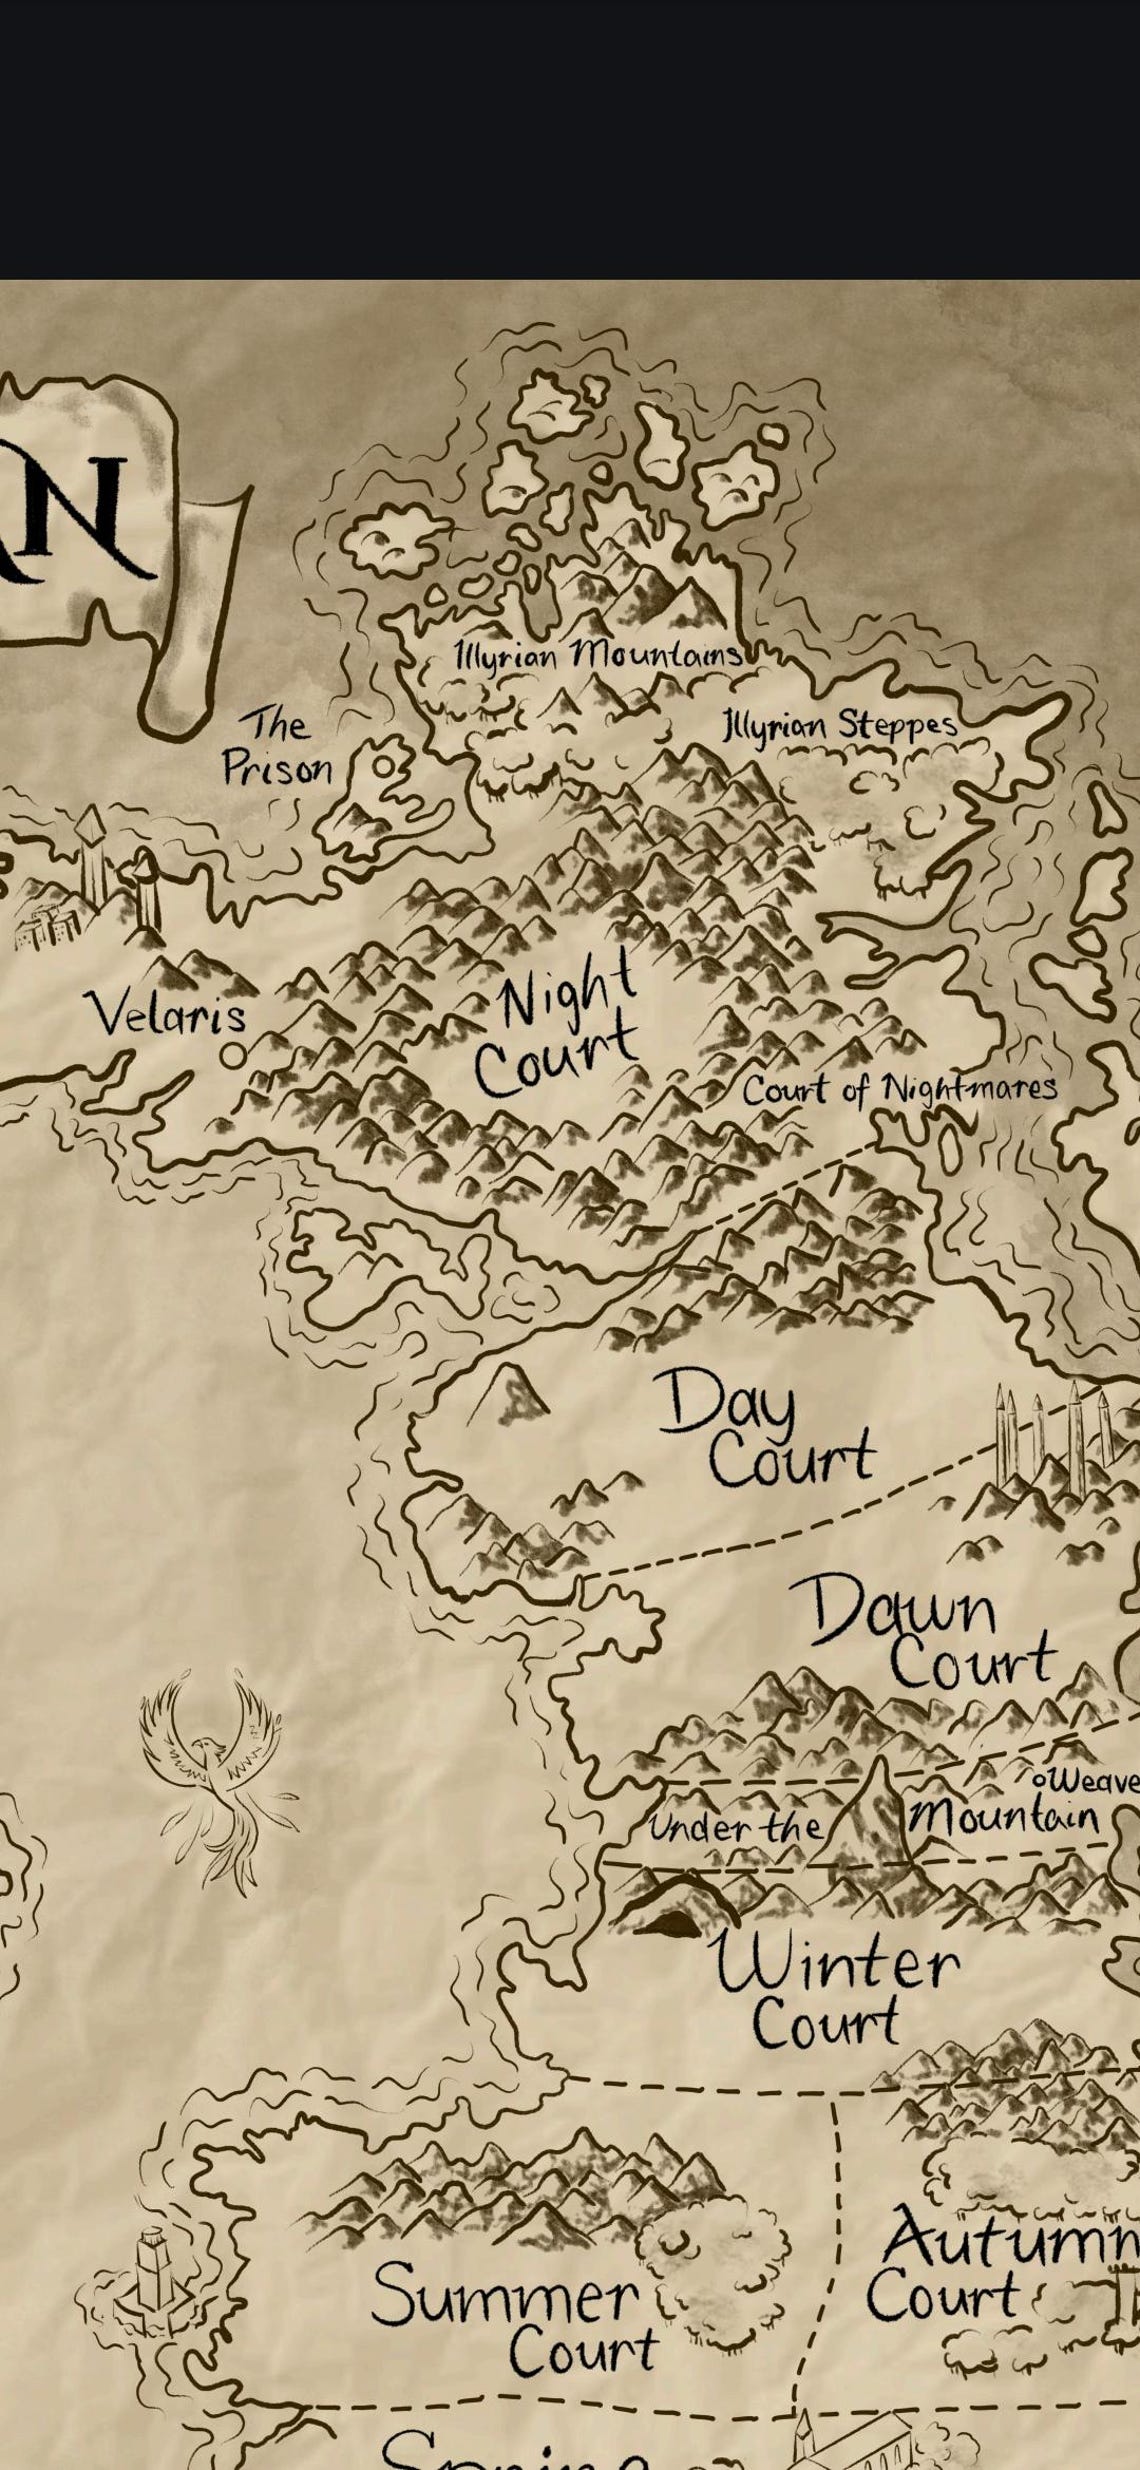 AN
Illyrian Mountains
Illyrian Steppes
The
Prison
Night
Court
Velaris
Court of Nightmares
Day
Court
Dawn
Court
Weave
Under the Mountain
Winter
Court
Autumn
Court
Summer
Court
Spring